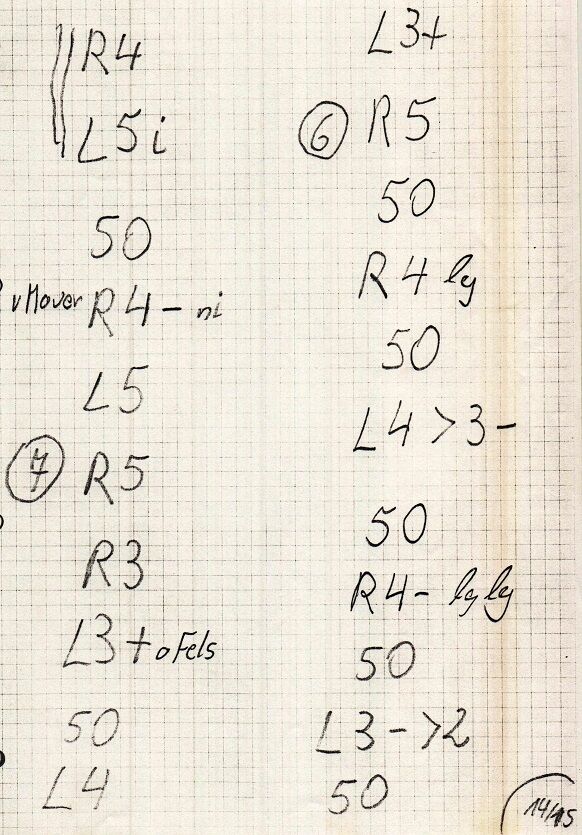 R4
L5 i
50
vMauer R4- ni
L5
7 R5
R3
L3+ o Fels
50
L4
L3+
6 R5
50
R4 lg
50
L4 >3-
50
R4- lg lg
50
L3- >2
50
14/15